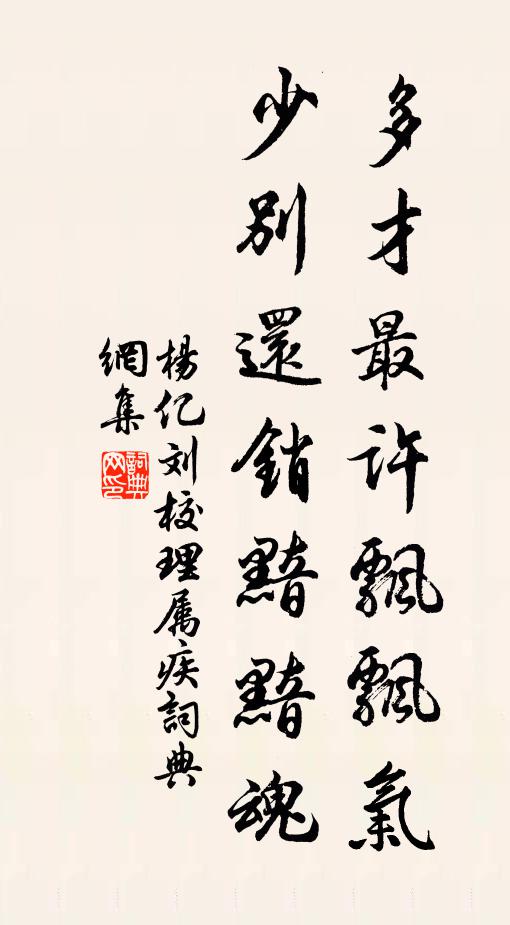 多才最許飄飄氣
少別還銷黯黯魂
楊亿刘校理属疾詞典
網集
詞典網印